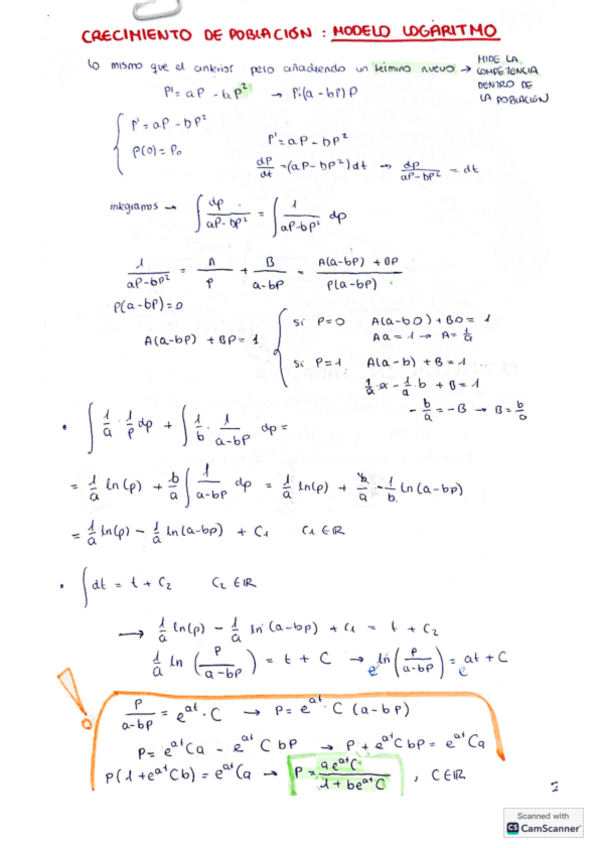 CRECIMIENTO DE POBLACIÓN : MODELO LOGARITMO
lo mismo que el anterior pero añadiendo un término nuevo → MIDE LA COMPETENCIA DENTRO DE LA POBLACIÓN
P' = aP - bP² → P'(a - bP)P
P' = aP - bP²
P(0) = P₀
P' = aP - bP²
dP/dt = (aP - bP²)dt → dP/(aP - bP²) = dt
integramos → ∫ dp/(aP - bP²) = ∫ 1/(aP - bP²) dp
1/(aP - bP²) = A/P + B/(a - bP) = (A(a - bP) + BP)/(P(a - bP))
P(a - bP) = 0
A(a - bP) + BP = 1
si P = 0 A(a - b0) + B0 = 1
Aa = 1 → A = 1/a
si P = 1 A(a - b) + B = 1
1/a · a - 1/a · b + B = 1
- b/a = -B → B = b/a
• ∫ 1/a · 1/P dp + ∫ 1/b · 1/(a - bP) dp =
= 1/a ln(p) + b/a ∫ 1/(a - bP) dp = 1/a ln(p) + b/a · - 1/b ln(a - bp)
= 1/a ln(p) - 1/a ln(a - bp) + C₁ C₁ ∈ ℝ
• ∫ dt = t + C₂ C₂ ∈ ℝ
→ 1/a ln(p) - 1/a ln(a - bp) + C₁ = t + C₂
1/a ln (P/(a - bP)) = t + C → e ln (P/(a - bP)) = e at + C
P/(a - bP) = e^at · C → P = e^at · C (a - bP)
P = e^at Ca - e^at C bP → P + e^at C bP = e^at Ca
P(1 + e^at Cb) = e^at Ca → P = a e^at C/(1 + b e^at C) , C ∈ ℝ
Scanned with
CS CamScanner